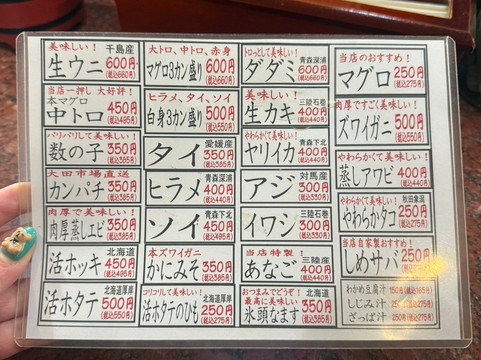 美味しい！ 千島産
生ウニ 600円
(税込660円)
当店一押し 大好評！
本マグロ
中トロ 450円
(税込495円)
パリパリして美味しい！
数の子 350円
(税込385円)
大田市場直送
カンパチ 350円
(税込385円)
肉厚で美味しい！
肉厚蒸しエビ 350円
(税込385円)
北海道
活ホッキ 450円
(税込495円)
北海道厚岸
活ホタテ 500円
(税込550円)
大トロ、中トロ、赤身
マグロ3カン盛り 600円
(税込660円)
ヒラメ、タイ、ソイ
白身3カン盛り 500円
(税込550円)
愛媛産
タイ 350円
(税込385円)
青森深浦
ヒラメ 400円
(税込440円)
青森下北
ソイ 450円
(税込495円)
本ズワイガニ
かにみそ 350円
(税込385円)
コリコリして美味しい！ 北海道厚岸
活ホタテのひも 250円
(税込275円)
トロっとして美味しい！
青森深浦
ダダミ 600円
(税込660円)
美味しい！
三陸石巻
生カキ 400円
(税込440円)
やわらかくて美味しい！
青森下北
ヤリイカ 400円
(税込440円)
対馬産
アジ 300円
(税込330円)
三陸石巻
イワシ 300円
(税込330円)
当店特製
三陸産
あなご 400円
(税込440円)
おつまみでどうぞ！ 北海道
最高に美味しい！
氷頭なます 350円
(税込385円)
当店のおすすめ！
マグロ 250円
(税込275円)
肉厚ですごく美味しい！
ズワイガニ 500円
(税込550円)
やわらかくて美味しい！
蒸しアワビ 400円
(税込440円)
やわらかくて美味しい！ 秋田象潟
やわらかタコ 250円
(税込275円)
当店自家製おすすめ！
しめサバ 250円
(税込275円)
わかめ豆腐汁 150円(税込165円)
しじみ汁 250円(税込275円)
ざっぱ汁 250円(税込275円)